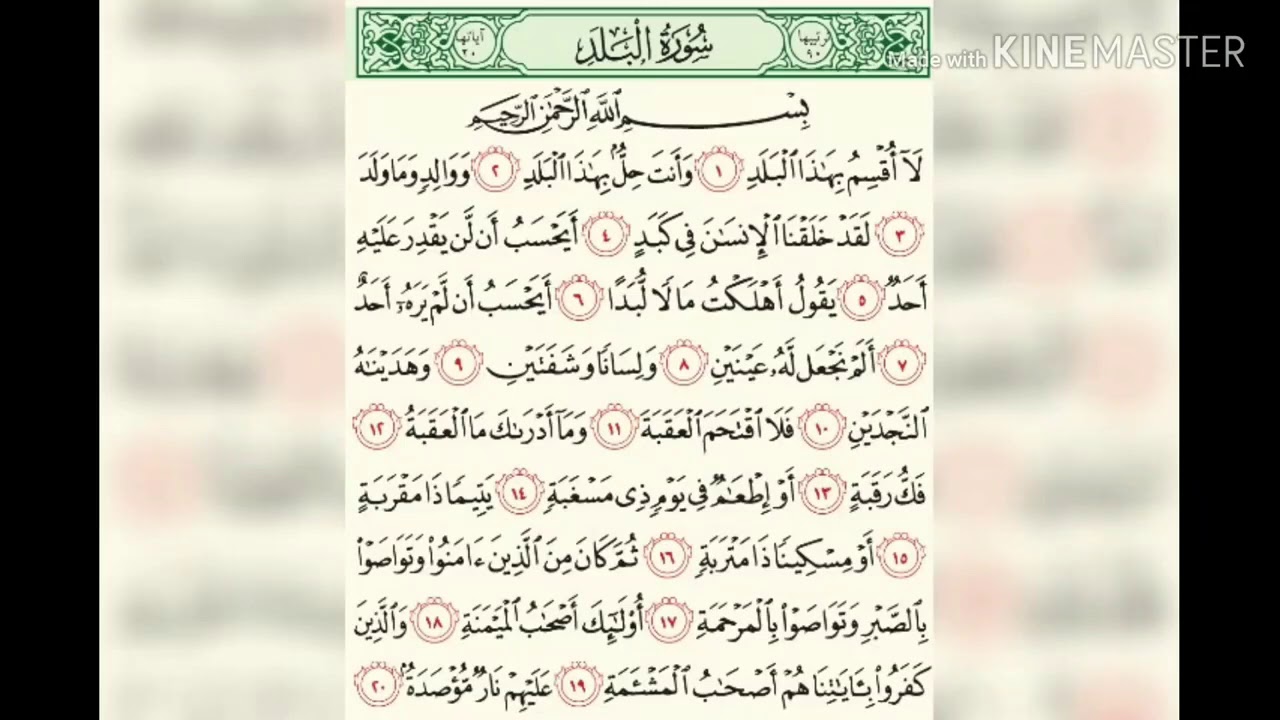 ترتيبها ٩٠ سُورَةُ الْبَلَدِ آياتها ٢٠
Made with KINEMASTER
بِسْمِ ٱللَّهِ ٱلرَّحْمَٰنِ ٱلرَّحِيمِ
لَآ أُقْسِمُ بِهَٰذَا ٱلْبَلَدِ ١ وَأَنتَ حِلٌّۢ بِهَٰذَا ٱلْبَلَدِ ٢ وَوَالِدٍ وَمَا وَلَدَ
٣ لَقَدْ خَلَقْنَا ٱلْإِنسَٰنَ فِى كَبَدٍ ٤ أَيَحْسَبُ أَن لَّن يَقْدِرَ عَلَيْهِ
أَحَدٌ ٥ يَقُولُ أَهْلَكْتُ مَالًا لُّبَدًا ٦ أَيَحْسَبُ أَن لَّمْ يَرَهُۥٓ أَحَدٌ
٧ أَلَمْ نَجْعَل لَّهُۥ عَيْنَيْنِ ٨ وَلِسَانًا وَشَفَتَيْنِ ٩ وَهَدَيْنَٰهُ
ٱلنَّجْدَيْنِ ١٠ فَلَا ٱقْتَحَمَ ٱلْعَقَبَةَ ١١ وَمَآ أَدْرَىٰكَ مَا ٱلْعَقَبَةُ ١٢
فَكُّ رَقَبَةٍ ١٣ أَوْ إِطْعَٰمٌ فِى يَوْمٍ ذِى مَسْغَبَةٍ ١٤ يَتِيمًا ذَا مَقْرَبَةٍ
١٥ أَوْ مِسْكِينًا ذَا مَتْرَبَةٍ ١٦ ثُمَّ كَانَ مِنَ ٱلَّذِينَ ءَامَنُوا۟ وَتَوَاصَوْا۟
بِٱلصَّبْرِ وَتَوَاصَوْا۟ بِٱلْمَرْحَمَةِ ١٧ أُو۟لَٰٓئِكَ أَصْحَٰبُ ٱلْمَيْمَنَةِ ١٨ وَٱلَّذِينَ
كَفَرُوا۟ بِـَٔايَٰتِنَا هُمْ أَصْحَٰبُ ٱلْمَشْـَٔمَةِ ١٩ عَلَيْهِمْ نَارٌ مُّؤْصَدَةٌۢ ٢٠